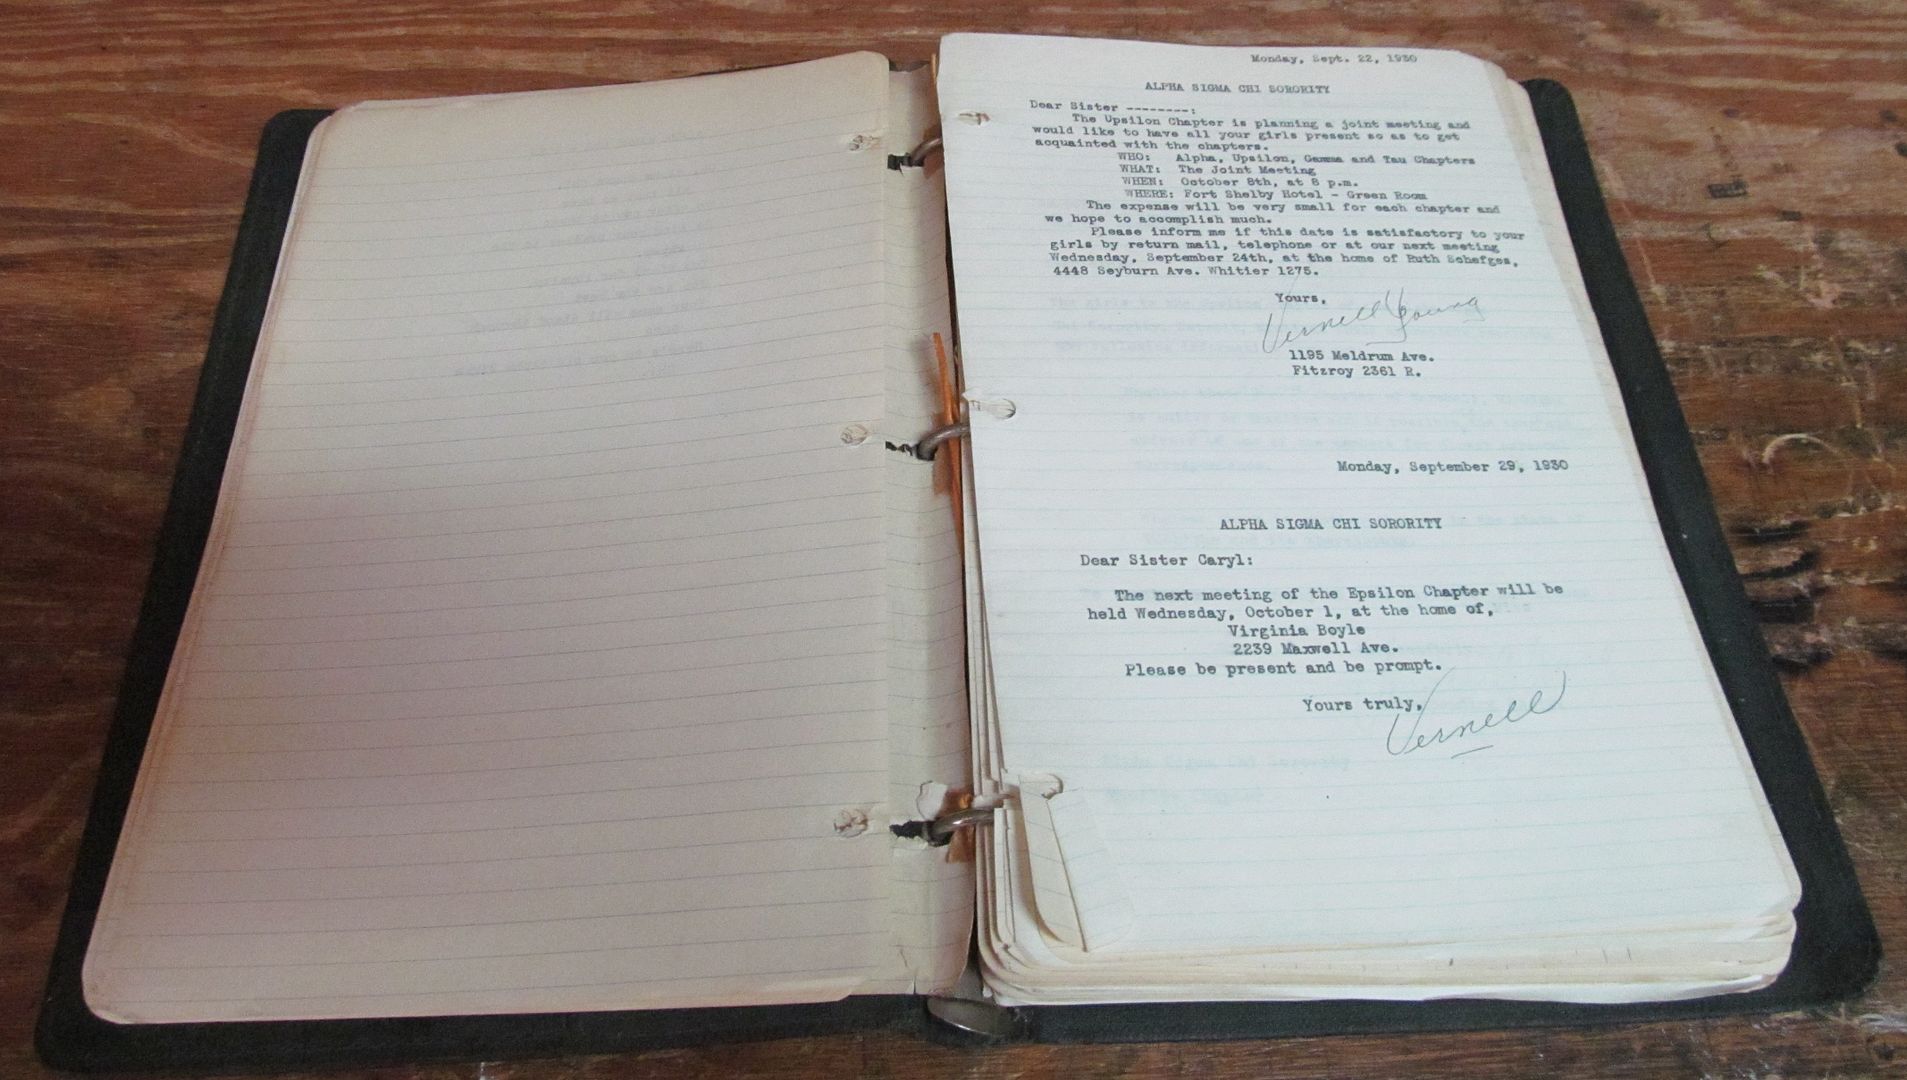 Monday, Sept. 22, 1930
ALPHA SIGMA CHI SORORITY
Dear Sister --------:
The Upsilon Chapter is planning a joint meeting and
would like to have all your girls present so as to get
acquainted with the chapters.
WHO: Alpha, Upsilon, Gamma and Tau Chapters
WHAT: The Joint Meeting
WHEN: October 8th, at 8 p.m.
WHERE: Fort Shelby Hotel - Green Room
The expense will be very small for each chapter and
we hope to accomplish much.
Please inform me if this date is satisfactory to your
girls by return mail, telephone or at our next meeting
Wednesday, September 24th, at the home of Ruth Schefges,
4448 Seyburn Ave. Whitier 1275.
Yours,
Vernell Young
1195 Meldrum Ave.
Fitzroy 2361 R.
Monday, September 29, 1930
ALPHA SIGMA CHI SORORITY
Dear Sister Caryl:
The next meeting of the Epsilon Chapter will be
held Wednesday, October 1, at the home of,
Virginia Boyle
2239 Maxwell Ave.
Please be present and be prompt.
Yours truly,
Vernell